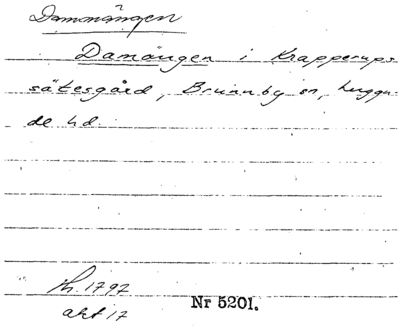 Dammängen
Damängen i Krapperups
sätesgård, Brunnby sn, Luggu-
de hd.
Th. 1797
akt 17
Nr 5201.